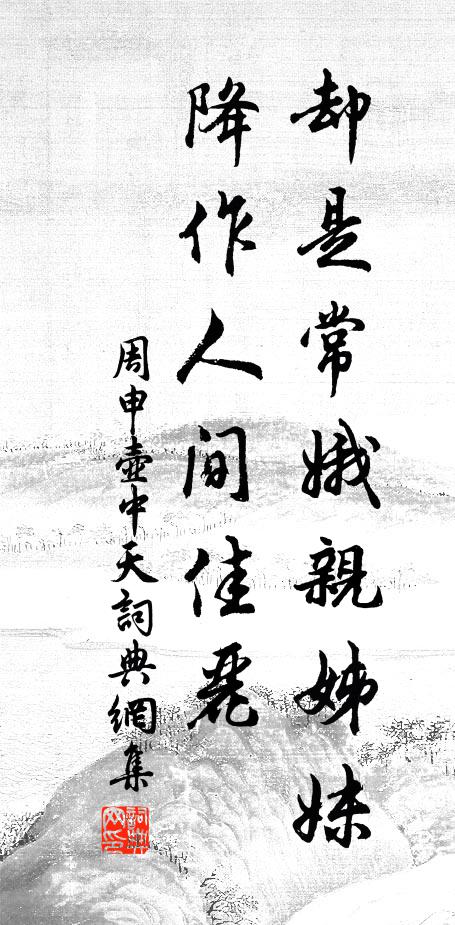 却是常娥親姊妹
降作人间佳麗
周申壺中天詞典網集
詞典网印